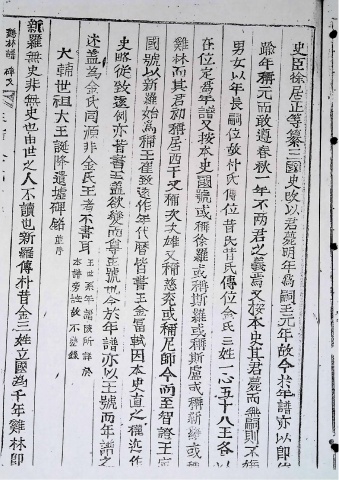 史臣徐居正等纂三國史攷以君薨明年爲嗣王元年故今於年譜亦以卽位
踰年稱元而敢遵春秋一年不兩君之義焉又按本史其君薨而無嗣則不
男女以年長嗣位故朴氏傳位昔氏昔氏傳位金氏三姓一心五十八王各以
在位定爲年譜又按本史國號或稱徐羅或稱斯羅或稱斯盧或稱新羅或稱
雞林而其君初稱居西干又稱次次雄又稱慈充或稱尼師今而至智證王
國號以新羅始爲稱王崔致遠作年代曆皆書王金富軾因本史直之稱迄作
史略從致遠例亦皆書王盖欲變而尊王號也今於年譜亦以王號而年譜之
述盖爲金氏同源非金氏王者不書耳
王世系年譜所譯於
本譜旁註故不疊錄
大輔世祖大王誕降遺墟碑銘並序
新羅無史非無史也由世之人不讀也新羅傳朴昔金三姓立國爲千年雞林卽
鷄林譜 碑文